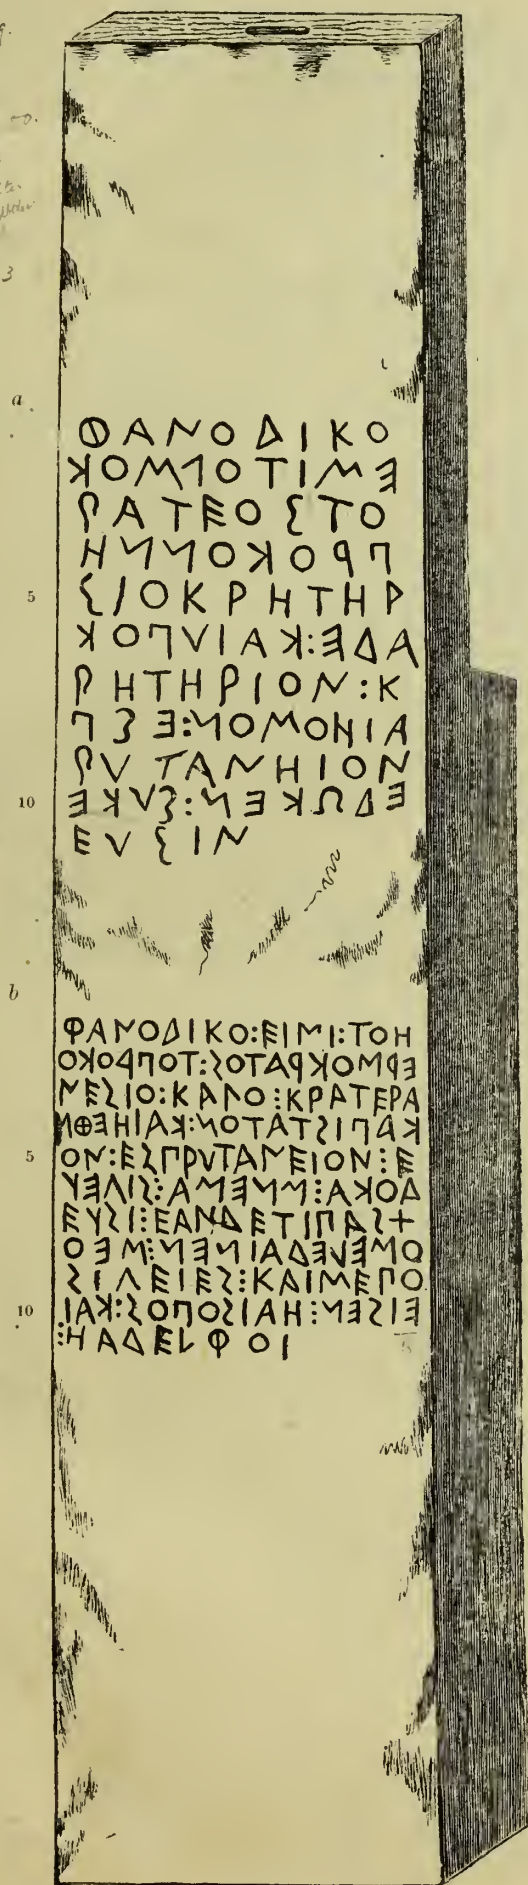 a
ΦΑΝΟΔΙΚΟ
ΕΜΙΤΟΡΜΟΚ
ΡΑΤΕΟΣΤΟ
ΠΡΟΚΟΝΝΗ
5 ΣΙΟΚΡΗΤΗΡ
ΑΔΕ:ΚΑΙΥΠΟΚ
ΡΗΤΗΡΙΟΝ:Κ
ΑΙΗΟΜΟΝ:ΕΣΠ
ΡΥΤΑΝΗΙΟΝ
10 ΕΔΩΚΕΝ:ΣΥΚΕ
ΕΥΣΙΝ
b
ΦΑΝΟΔΙΚΟ:ΕΙΜΙ:ΤΟΗ
ΕΡΜΟΚΡΑΤΟΣ:ΤΟΠΡΟΚΟ
ΝΕΣΙΟ:ΚΑΓΟ:ΚΡΑΤΕΡΑ
ΚΑΠΙΣΤΑΤΟΝ:ΚΑΙΗΕΘΜ
5 ΟΝ:ΕΣΠΡΥΤΑΝΕΙΟΝ:Ε
ΔΟΚΑ:ΜΝΕΜΑ:ΣΙΓΕΥ
ΕΥΣΙ:ΕΑΝΔΕΤΙΠΑΣΧ
ΟΜΕΛΕΔΑΙΝΕΝ:ΜΕΟ
ΣΙΓΕΙΕΣ:ΚΑΙΜΕΠΟ
10 ΕΙΣΕΝ:ΗΑΙΣΟΠΟΣ:ΚΑΙ
:ΗΑΔΕΛΦΟΙ